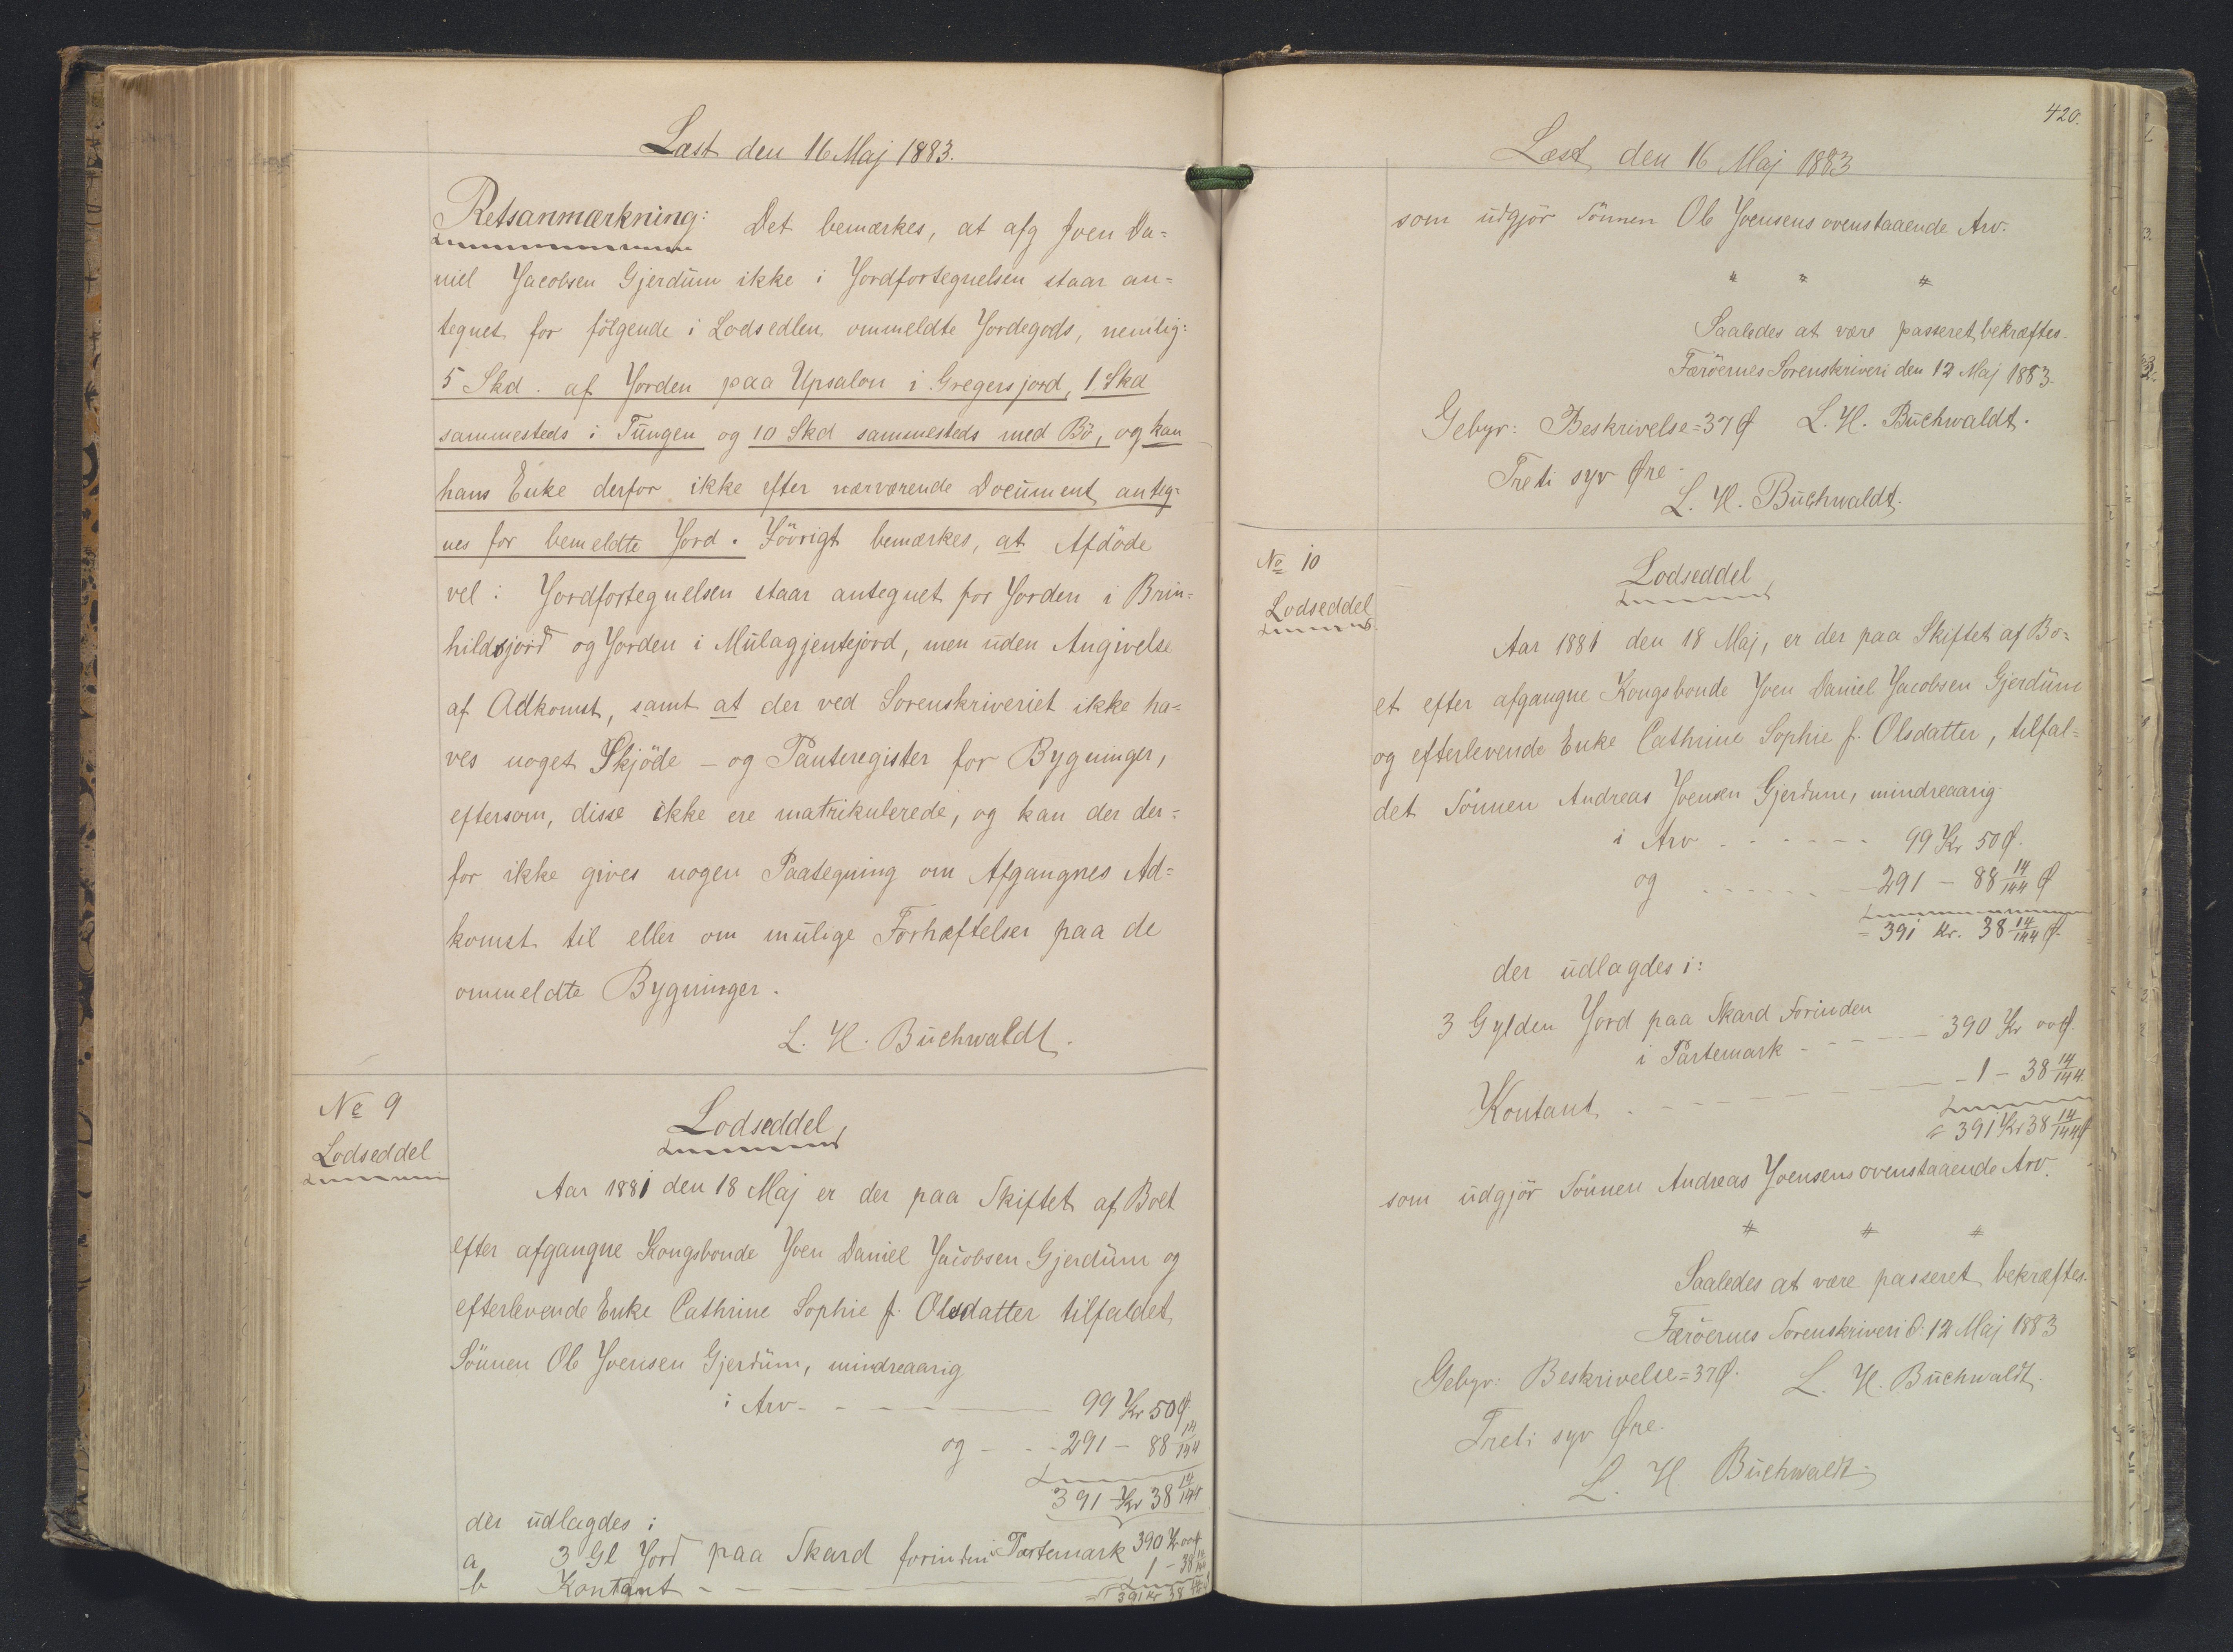 Læst den 16 Maj 1883.
Retsanmærkning: Det bemærkes, at afg Joen Da-
niel Jacobsen Gjerdüm ikke i Jordfortegnelsen staar an-
tegnet for fölgende i Lodsedlen ommeldte Jordegods, nemlig:
5 Skd. af Jorden paa Upsalon i Gregersjord, 1 Skd
sammesteds i Tüngen og 10 Skd sammesteds med Bö, og kan
hans Enke derfor ikke efter nærværende Document anteg-
nes for bemeldte Jord. Iövrigt bemærkes, at Afdöde
vel i Jordfortegnelsen staar antegnet for Jorden i Brin-
hildsjord og Jorden i Mülagjentejord, men uden Angivelse
af Adkomst, samt at der ved Sorenskriveriet ikke ha-
ves noget Skjöde- og Panteregister for Bygninger,
eftersom, disse ikke ere matrikulerede, og kan der der-
for ikke gives nogen Paategning om Afgangnes Ad-
komst til eller om mulige Forhæftelser paa de
ommeldte Bygninger.
L. H. Büchwaldt.
No 9
Lodseddel
Lodseddel
Aar 1881 den 18 Maj er der paa Skiftet af Boet
efter afgangne Kongsbonde Joen Daniel Jacobsen Gjerdüm og
efterlevende Enke Cathrine Sophie f. Olsdatter tilfaldet
Sönnen Ole Joensen Gjerdüm, mindreaarig
i Arv - - - 99 Kr 50 Ø.
og - - - 291 - 88 14/144
391 Kr 38 14/144
der udlagdes i
a 3 Gl Jord paa Skard forinden i Partemark 390 Kr 00 Ø
b Kontant - - - 1 - 38 14/144
= 391 Kr 38 14/144
420.
Læst den 16 Maj 1883
som üdgjör Sönnen Ole Joensens ovenstaaende Arv.
" " "
Saaledes at være passeret bekræftes.
Færöernes Sorenskriveri den 12 Maj 1883.
Gebyr: Beskrivelse = 37 Ø L. H. Büchwaldt.
Treti syv Øre.
L. H. Büchwaldt.
No 10
Lodseddel
Lodseddel
Aar 1881 den 18 Maj, er der paa Skiftet af Bo-
et efter afgangne Kongsbonde Joen Daniel Jacobsen Gjerdüm
og efterlevende Enke Cathrine Sophie f. Olsdatter, tilfal-
det Sönnen Andreas Joensen Gjerdum, mindreaarig
i Arv - - - 99 Kr 50 Ø.
og - - - 291 - 88 14/144 Ø
= 391 Kr. 38 14/144 Ø.
der üdlagdes i:
3 Gylden Jord paa Skard forinden
i Partemark - - - 390 Kr 00 Ø.
Kontant - - - 1 - 38 14/144
= 391 Kr 38 14/144 Ø
som üdgjör Sönnen Andreas Joensens ovenstaaende Arv.
" " "
Saaledes at være passeret bekræftes.
Færöernes Sorenskriveri d: 12 Maj 1883
Gebyr: Beskrivelse = 37 Ø. L. H. Büchwaldt.
Treti syv Øre.
L. H. Büchwaldt